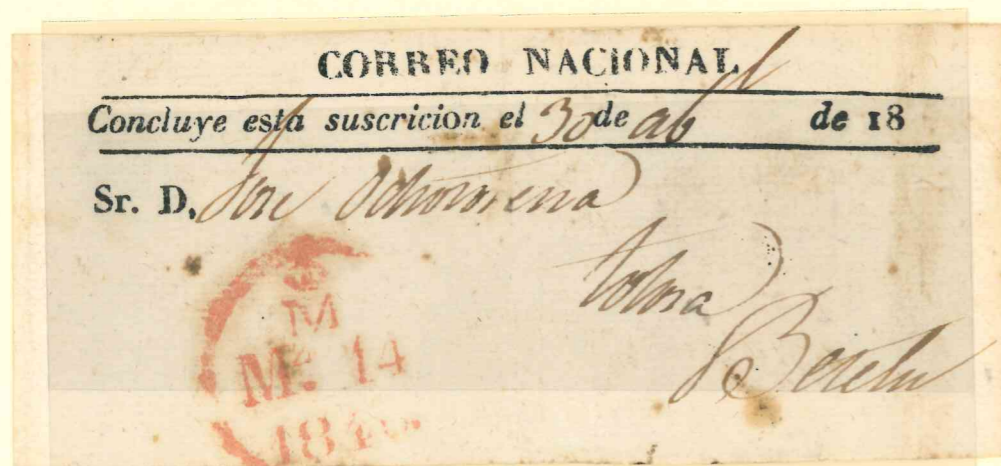 CORREO NACIONAL
Concluye esta suscricion el 30 de ab l de 18
Sr. D. José
tolosa
Betelu
M
Mº 14
184